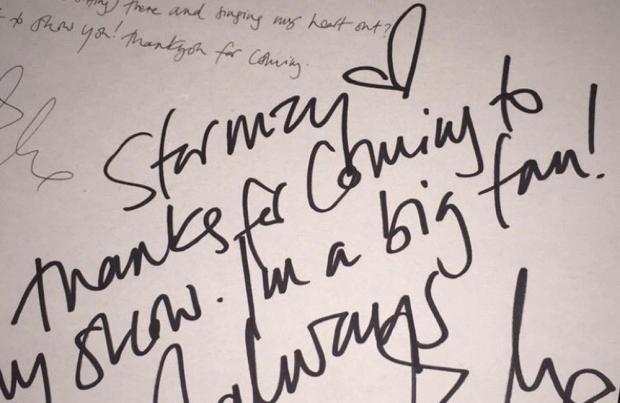 there and singing my heart out?
to show you! thankyou for coming.
Stormzy
thanks for Coming to
my show. I'm a big fan!
always